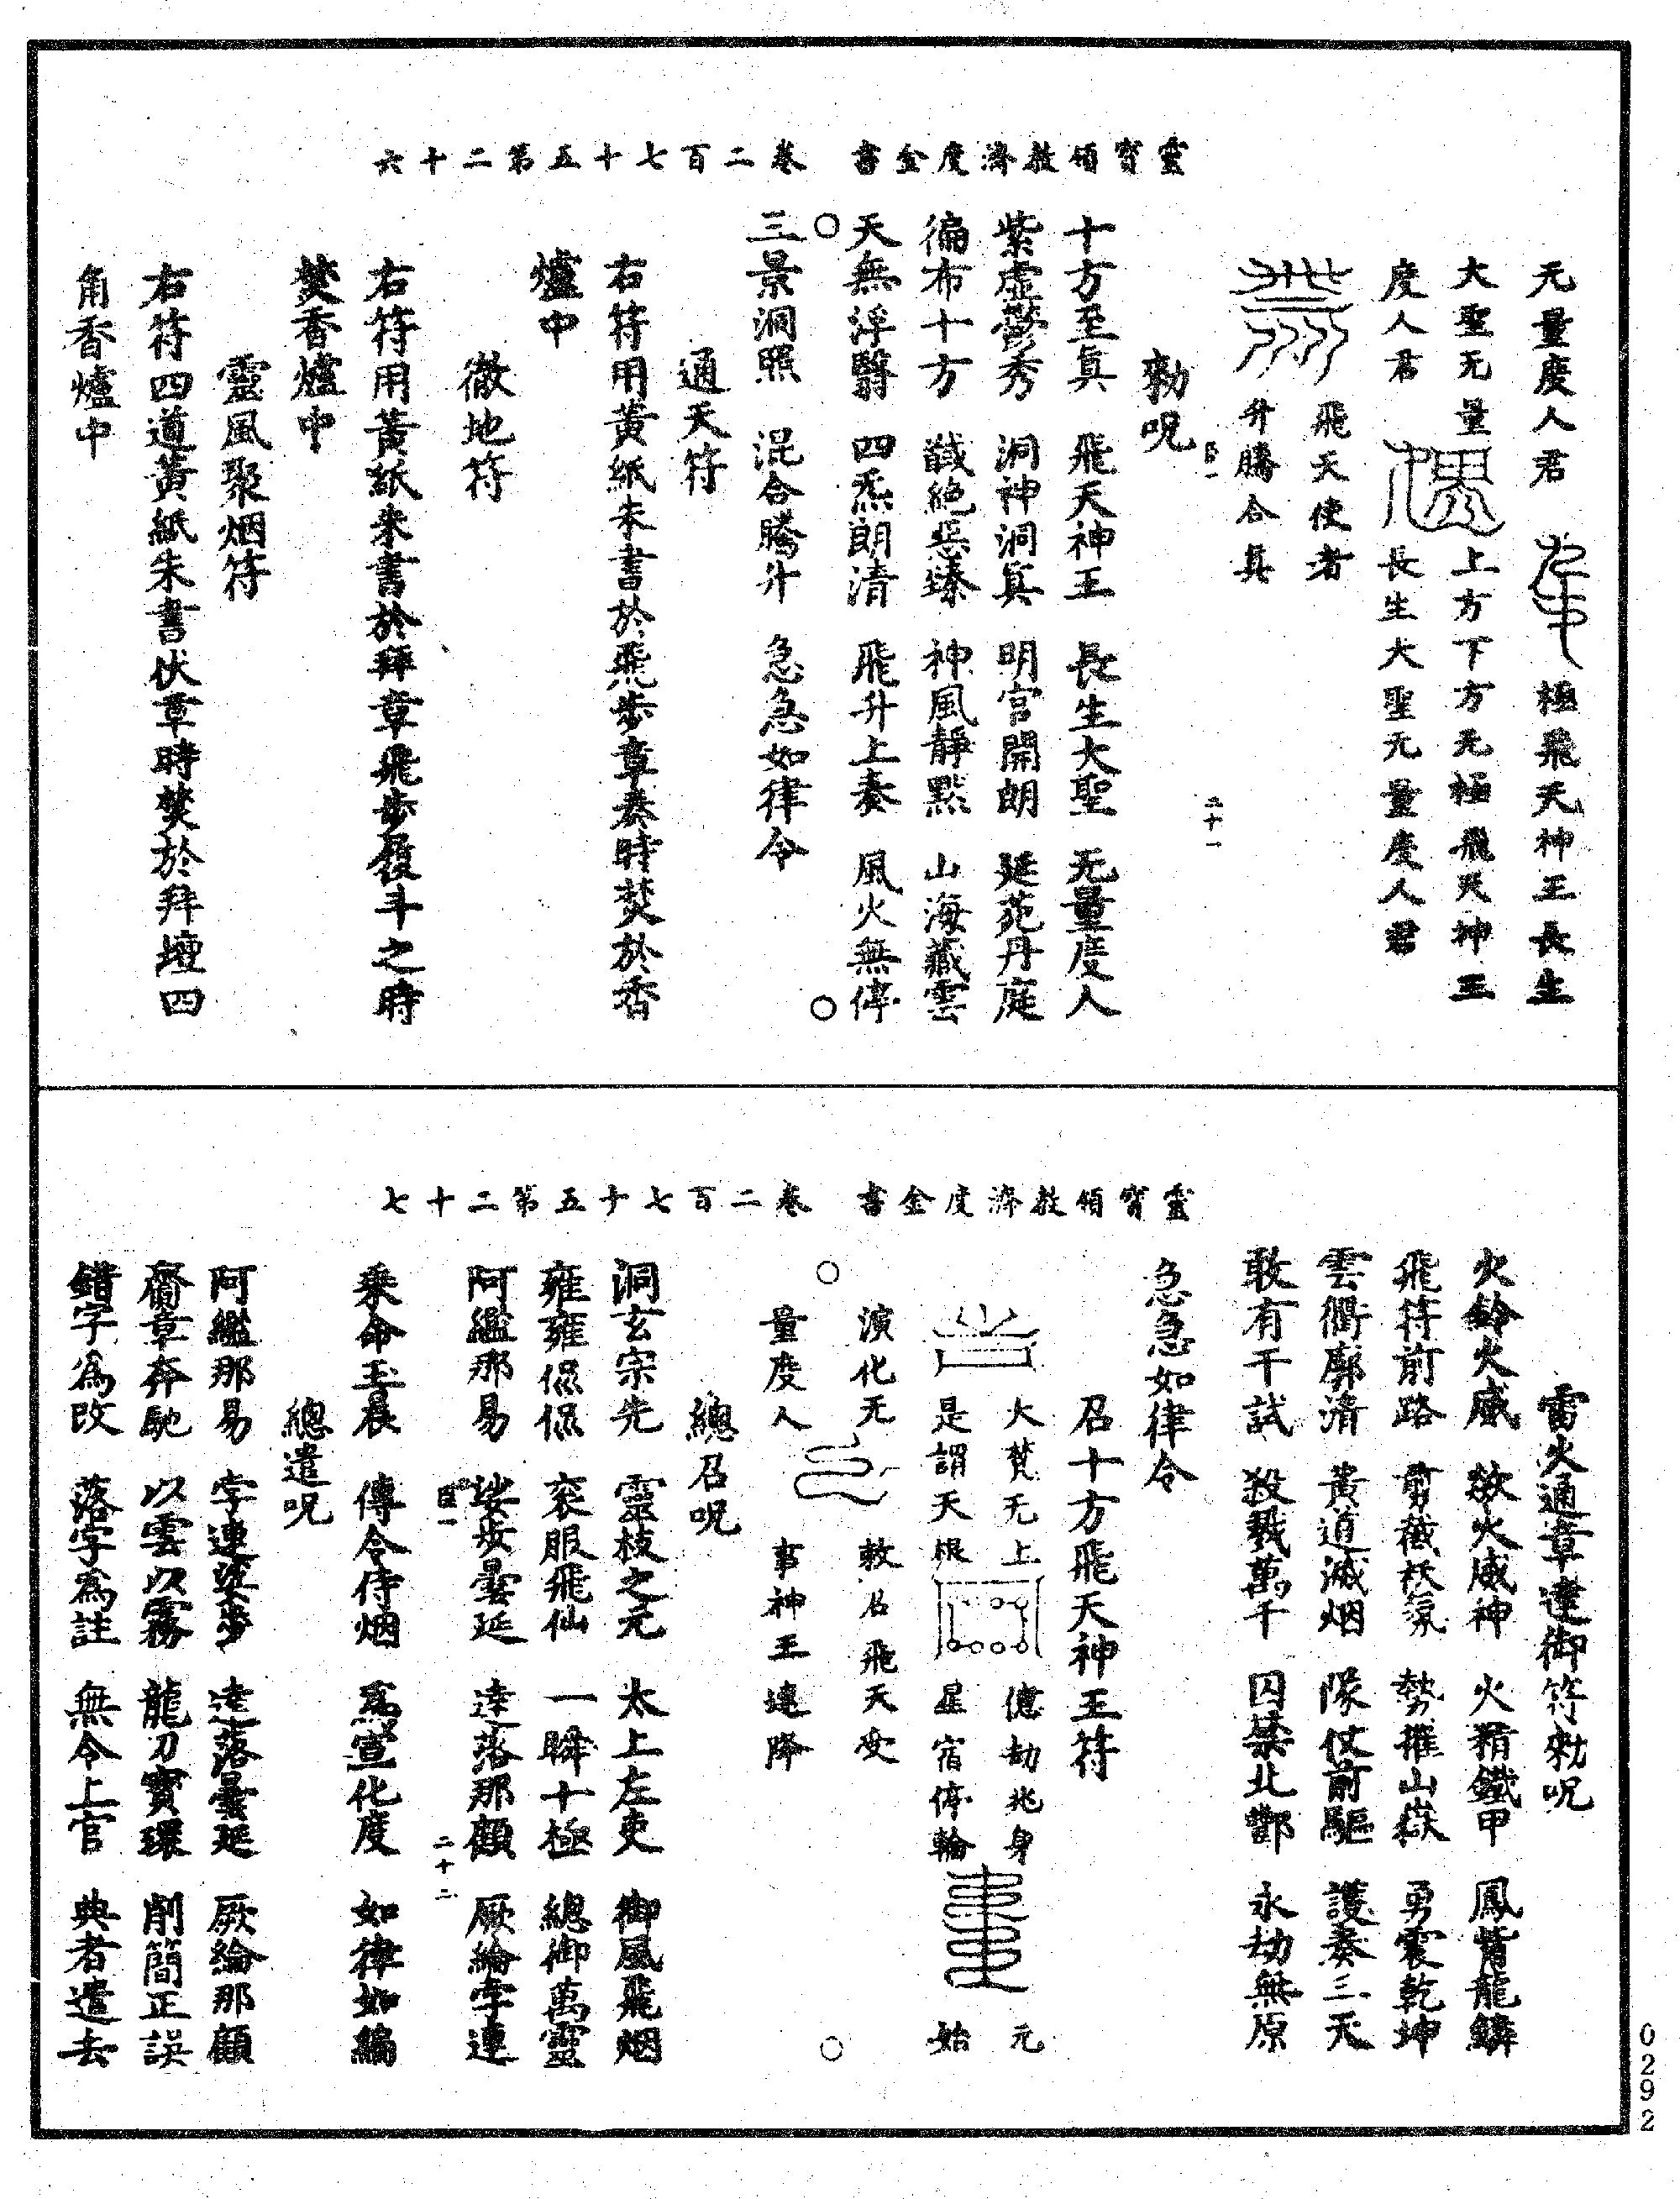 靈寶領教濟度金書　卷二百七十五第二十六
无量度人君　極飛天神王長生
大聖无量　上方下方无極飛天神王
度人君　長生大聖无量度人君
飛天使者
升騰合真
二十一
敕呪
十方至真　飛天神王　長生大聖　无量度人
紫虛鬱秀　洞神洞真　明宮開朗　延苑丹庭
徧布十方　馘絕惡臻　神風靜默　山海藏雲
天無浮翳　四炁朗清　飛升上奏　風火無停
三景洞照　混合騰升　急急如律令
通天符
右符用黃紙朱書於飛步章奏時焚於香
爐中
徹地符
右符用黃紙朱書於拜章飛步履斗之時
焚香爐中
靈風聚烟符
右符四道黃紙朱書伏章時焚於拜壇四
角香爐中
靈寶領教濟度金書　卷二百七十五第二十七
雷火通章達御符敕呪
火鈴火威　欻火威神　火精鐵甲　鳳觜龍鱗
飛符前路　剪截祅氛　勢摧山嶽　勇震乾坤
雲衢廓清　黃道滅烟　隊仗前驅　護奏三天
敢有干試　殺戮萬千　囚禁北酆　永劫無原
急急如律令
召十方飛天神王符
大梵无上　億劫兆身　元
是謂天根　星宿停輪　始
演化无　敕召飛天安
量度人　事神王速降
總召呪
洞玄宗先　靈枝之元　太上左吏　御風飛烟
雍雍侃侃　衮服飛仙　一瞬十極　總御萬靈
阿鑑那易　娑安曇延　逵落那顧　厥綸字連
臣一　二十二
乘命玉晨　傳令侍烟　爲宣化度　如律如編
總遣呪
阿鑑那易　字連梁步　逵落曇延　厥綸那顧
齎章奔馳　以雲以霧　龍刀寶環　削簡正誤
錯字爲改　落字爲註　無令上官　典者遣去
0292